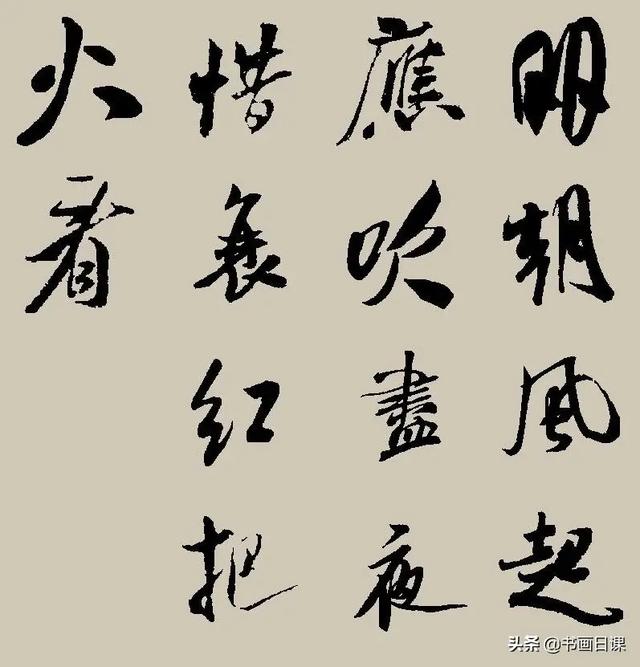 明朝風起
應吹盡夜
惜衰紅把
火看
头条 @书画日课